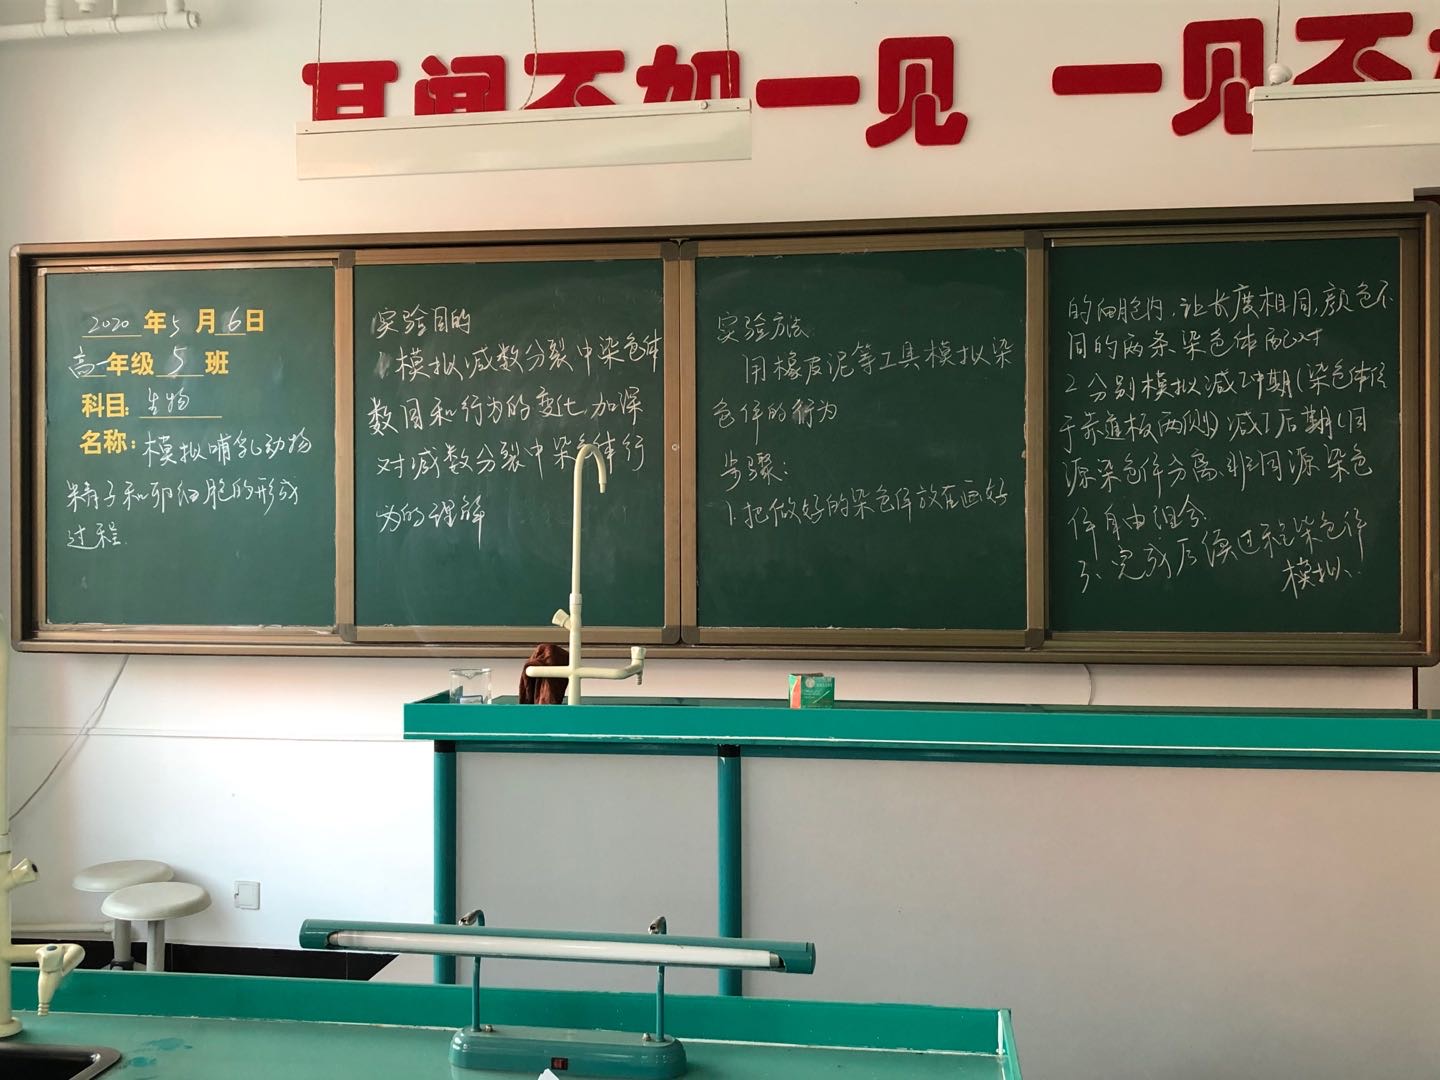 耳闻不如一见 一见不
2020年5月6日
高一年级5班
科目:生物
名称:模拟哺乳动物
精子和卵细胞的形成
过程
实验目的
1.模拟减数分裂中染色体
数目和行为的变化,加深
对减数分裂中染色体行
为的理解
实验方法
用橡皮泥等工具模拟染
色体的行为
步骤:
1.把做好的染色体放在画好
的细胞内,让长度相同,颜色不
同的两条染色体配对
2.分别模拟减I中期(染色体位
于赤道板两侧)减I后期(同
源染色体分离,非同源染色
体自由组合
3.完成后续过程染色体
模拟.